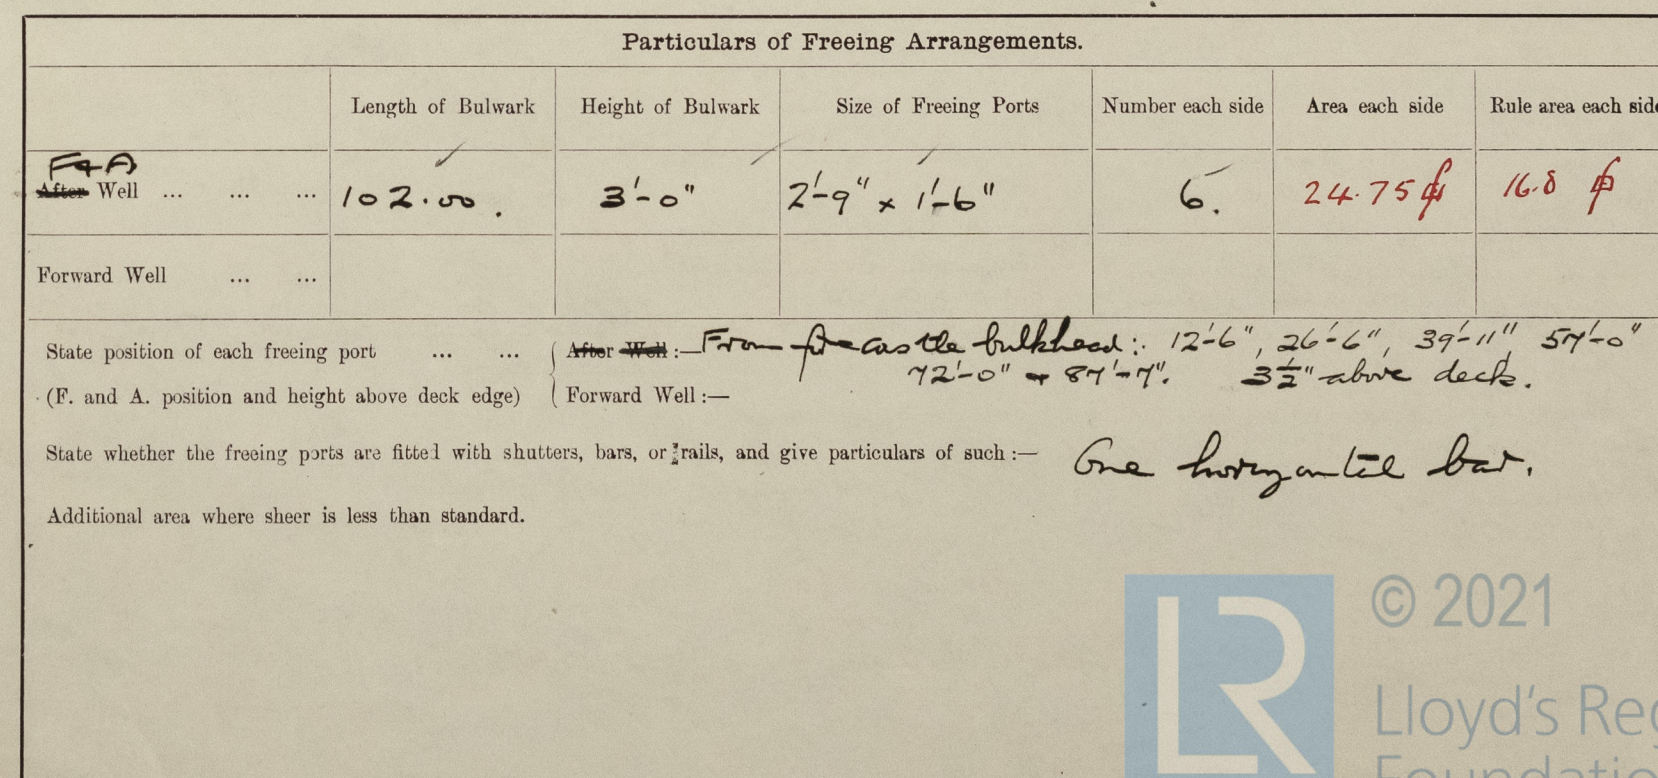 Particulars of Freeing Arrangements.
Length of Bulwark Height of Bulwark Size of Freeing Ports Number each side Area each side Rule area each side
F & A
After Well ... ... ... 102.00. 3'-0" 2'-9" x 1'-6" 6. 24.75 16.8
Forward Well ... ...
State position of each freeing port ... ... After Well :— From forecastle bulkhead: 12'-6", 26'-6", 39'-11", 57'-0"
72'-0" & 87'-7". 3½" above deck.
(F. and A. position and height above deck edge) Forward Well :—
State whether the freeing ports are fitted with shutters, bars, or rails, and give particulars of such :— One horizontal bar.
Additional area where sheer is less than standard.
© 2021
LR
Lloyd's Reg
Foundatio